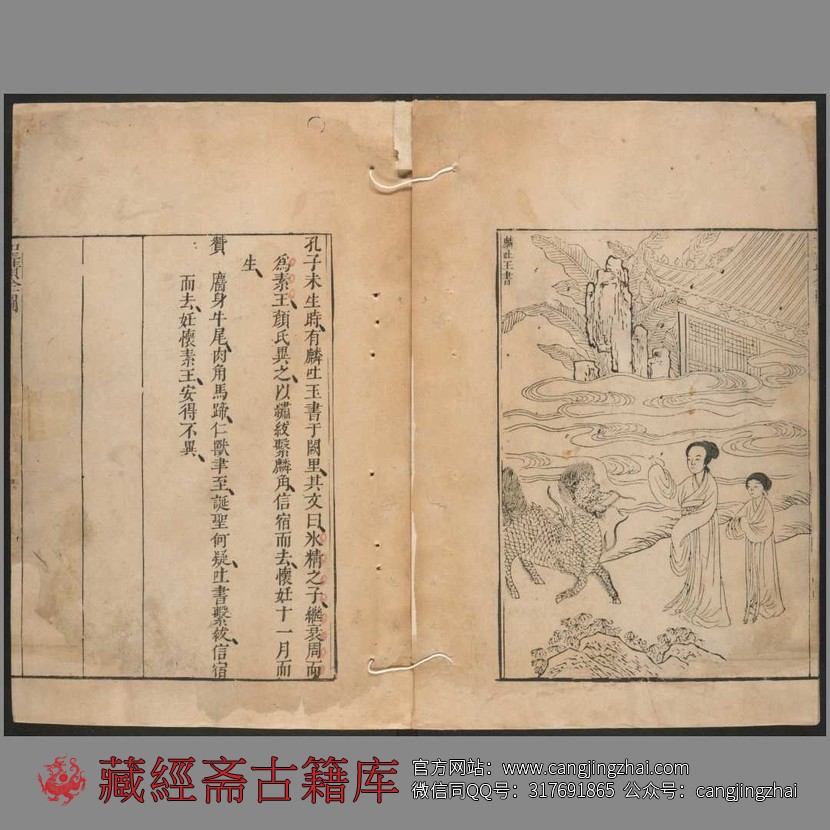 麟吐玉書
孔子未生時、有麟吐玉書于闕里、其文曰、水精之子、繼衰周而
爲素王、顏氏異之、以繡紱繫麟角、信宿而去、懷妊十一月而
生、
贊 麕身牛尾、肉角馬蹄、仁獸聿至、誕聖何疑、吐書繫紱、信宿
而去、妊懷素王、安得不異、
藏經斋古籍库
官方网站：www.cangjingzhai.com
微信同QQ号：317691865 公众号：cangjingzhai